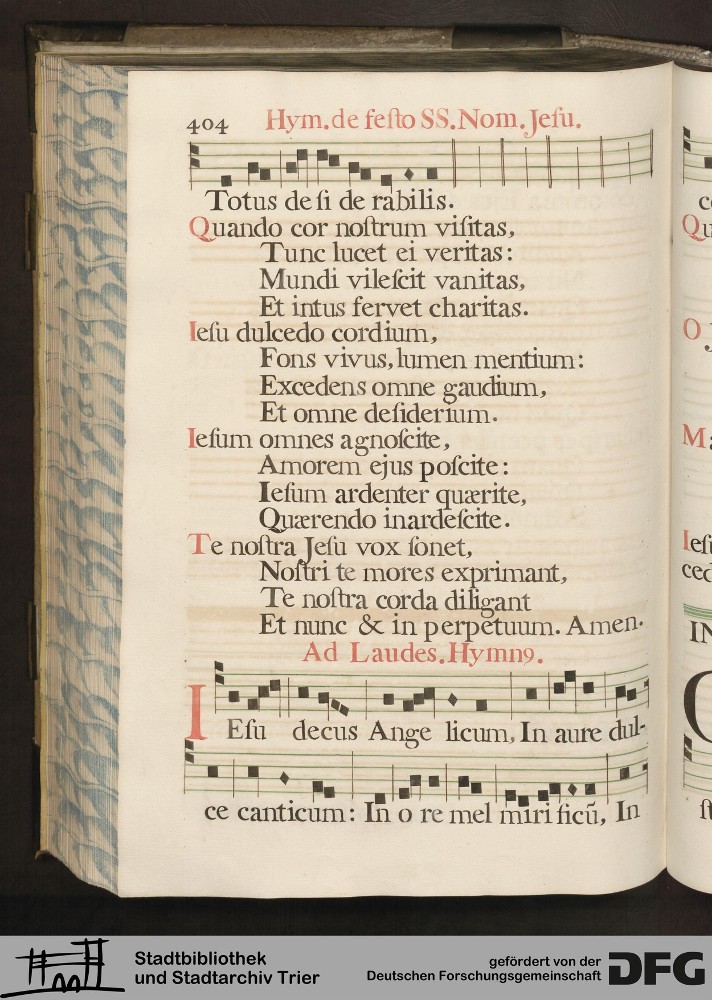 404 Hym. de feſto SS. Nom. Jeſu.
Totus de ſi de rabilis.
Quando cor noſtrum viſitas,
Tunc lucet ei veritas:
Mundi vileſcit vanitas,
Et intus fervet charitas.
Ieſu dulcedo cordium,
Fons vivus, lumen mentium:
Excedens omne gaudium,
Et omne deſiderium.
Ieſum omnes agnoſcite,
Amorem ejus poſcite:
Ieſum ardenter quærite,
Quærendo inardeſcite.
Te noſtra Jeſu vox ſonet,
Noſtri te mores exprimant,
Te noſtra corda diligant
Et nunc & in perpetuum. Amen.
Ad Laudes. Hymn9.
IEſu decus Ange licum, In aure dul-
ce canticum: In o re mel miri ficũ, In
Stadtbibliothek
und Stadtarchiv Trier
gefördert von der
Deutschen Forschungsgemeinschaft
DFG